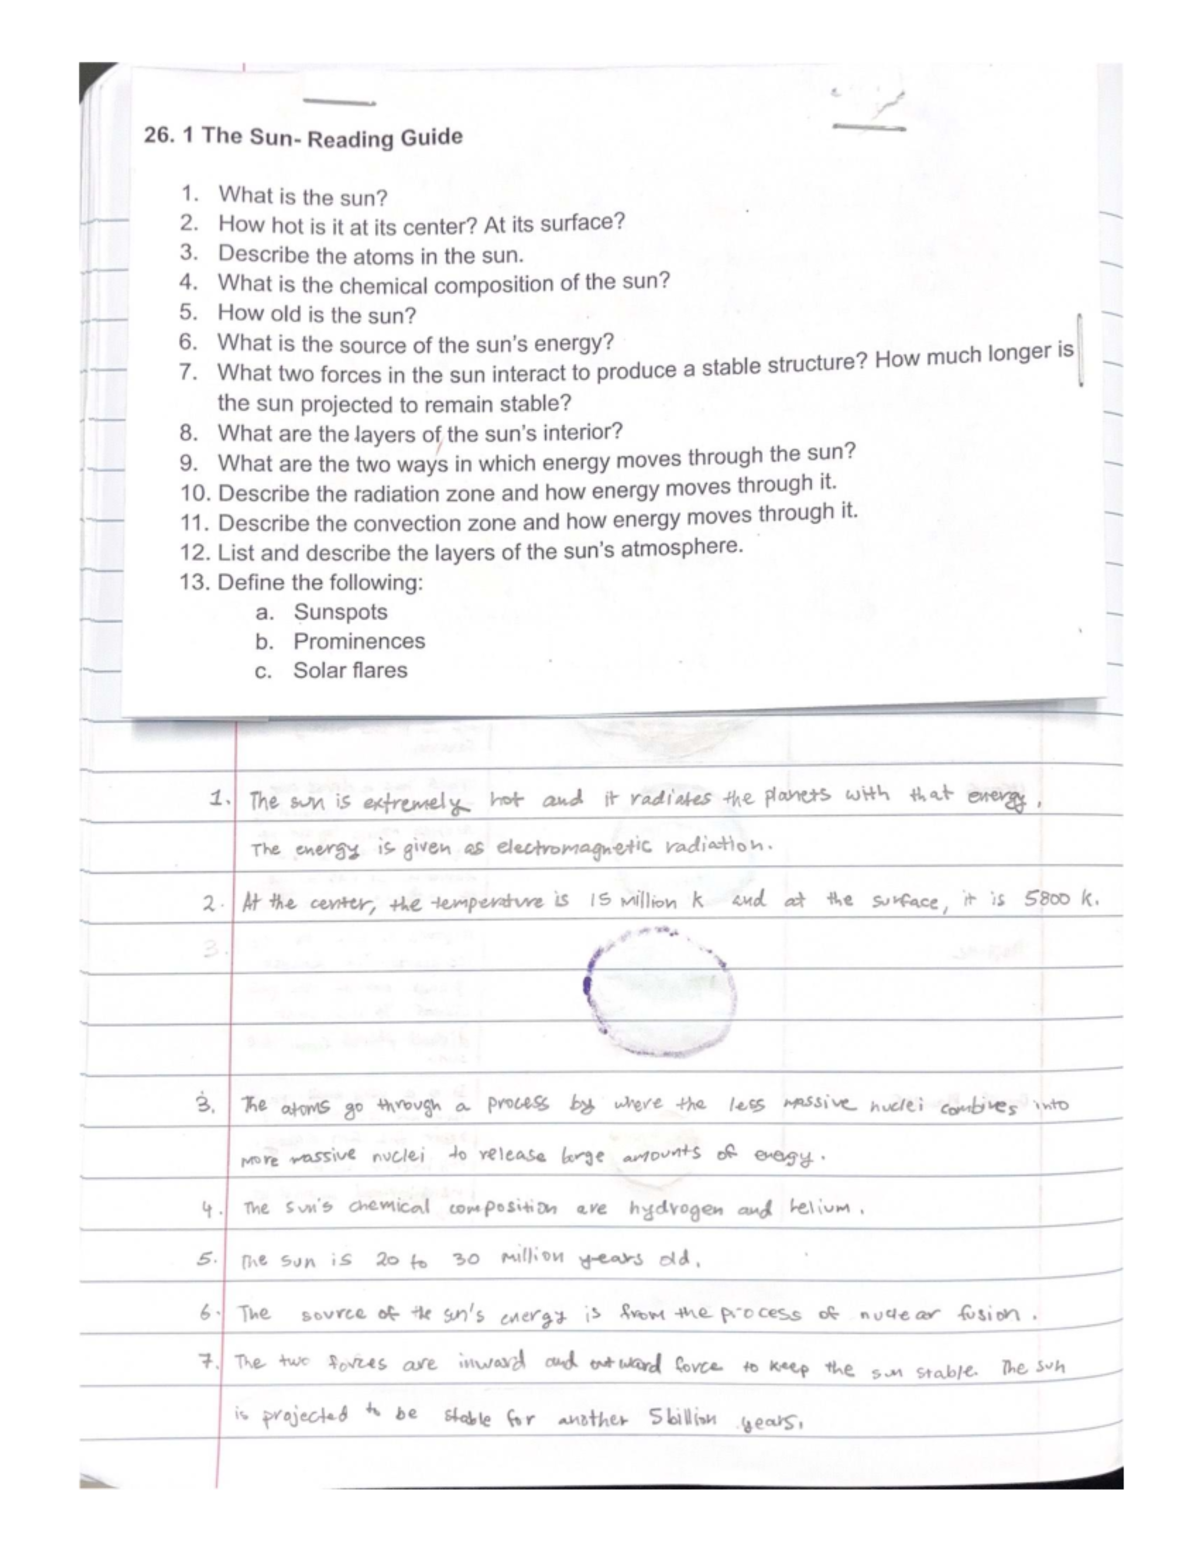 26. 1 The Sun- Reading Guide
1. What is the sun?
2. How hot is it at its center? At its surface?
3. Describe the atoms in the sun.
4. What is the chemical composition of the sun?
5. How old is the sun?
6. What is the source of the sun's energy?
7. What two forces in the sun interact to produce a stable structure? How much longer is
the sun projected to remain stable?
8. What are the layers of the sun's interior?
9. What are the two ways in which energy moves through the sun?
10. Describe the radiation zone and how energy moves through it.
11. Describe the convection zone and how energy moves through it.
12. List and describe the layers of the sun's atmosphere.
13. Define the following:
a. Sunspots
b. Prominences
c. Solar flares
1. The sun is extremely hot and it radiates the planets with that energy.
The energy is given as electromagnetic radiation.
2. At the center, the temperature is 15 million k and at the surface, it is 5800 k.
3.
3. The atoms go through a process by where the less massive nuclei combines into
more massive nuclei to release large amounts of enegy.
4. The sun's chemical composition are hydrogen and helium.
5. The sun is 20 to 30 million years old.
6. The source of the sun's energy is from the process of nuclear fusion.
7. The two forces are inward and outward force to keep the sun stable. The sun
is projected to be stable for another 5 billion years.